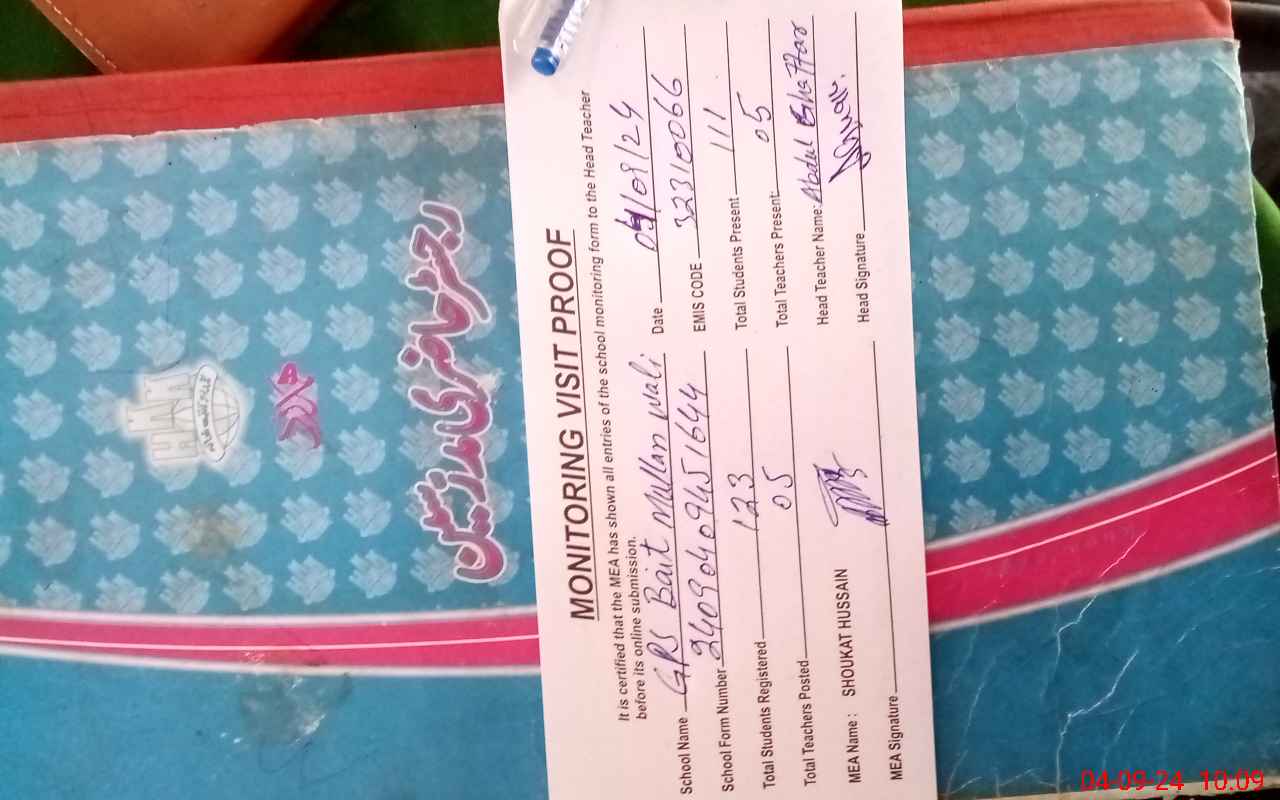 MONITORING VISIT PROOF
It is certified that the MEA has shown all entries of the school monitoring form to the Head Teacher
before its online submission.
School Name GPS Bait Mullan Wali Date 04/09/24
School Form Number 24090409451644 EMIS CODE 32310066
Total Students Registered 123 Total Students Present 111
Total Teachers Posted 05 Total Teachers Present: 05
MEA Name : SHOUKAT HUSSAIN Head Teacher Name: Abdul Ghaffar
MEA Signature Head Signature
رجسٹر حاضری مدرسین
04-09-24 10:09